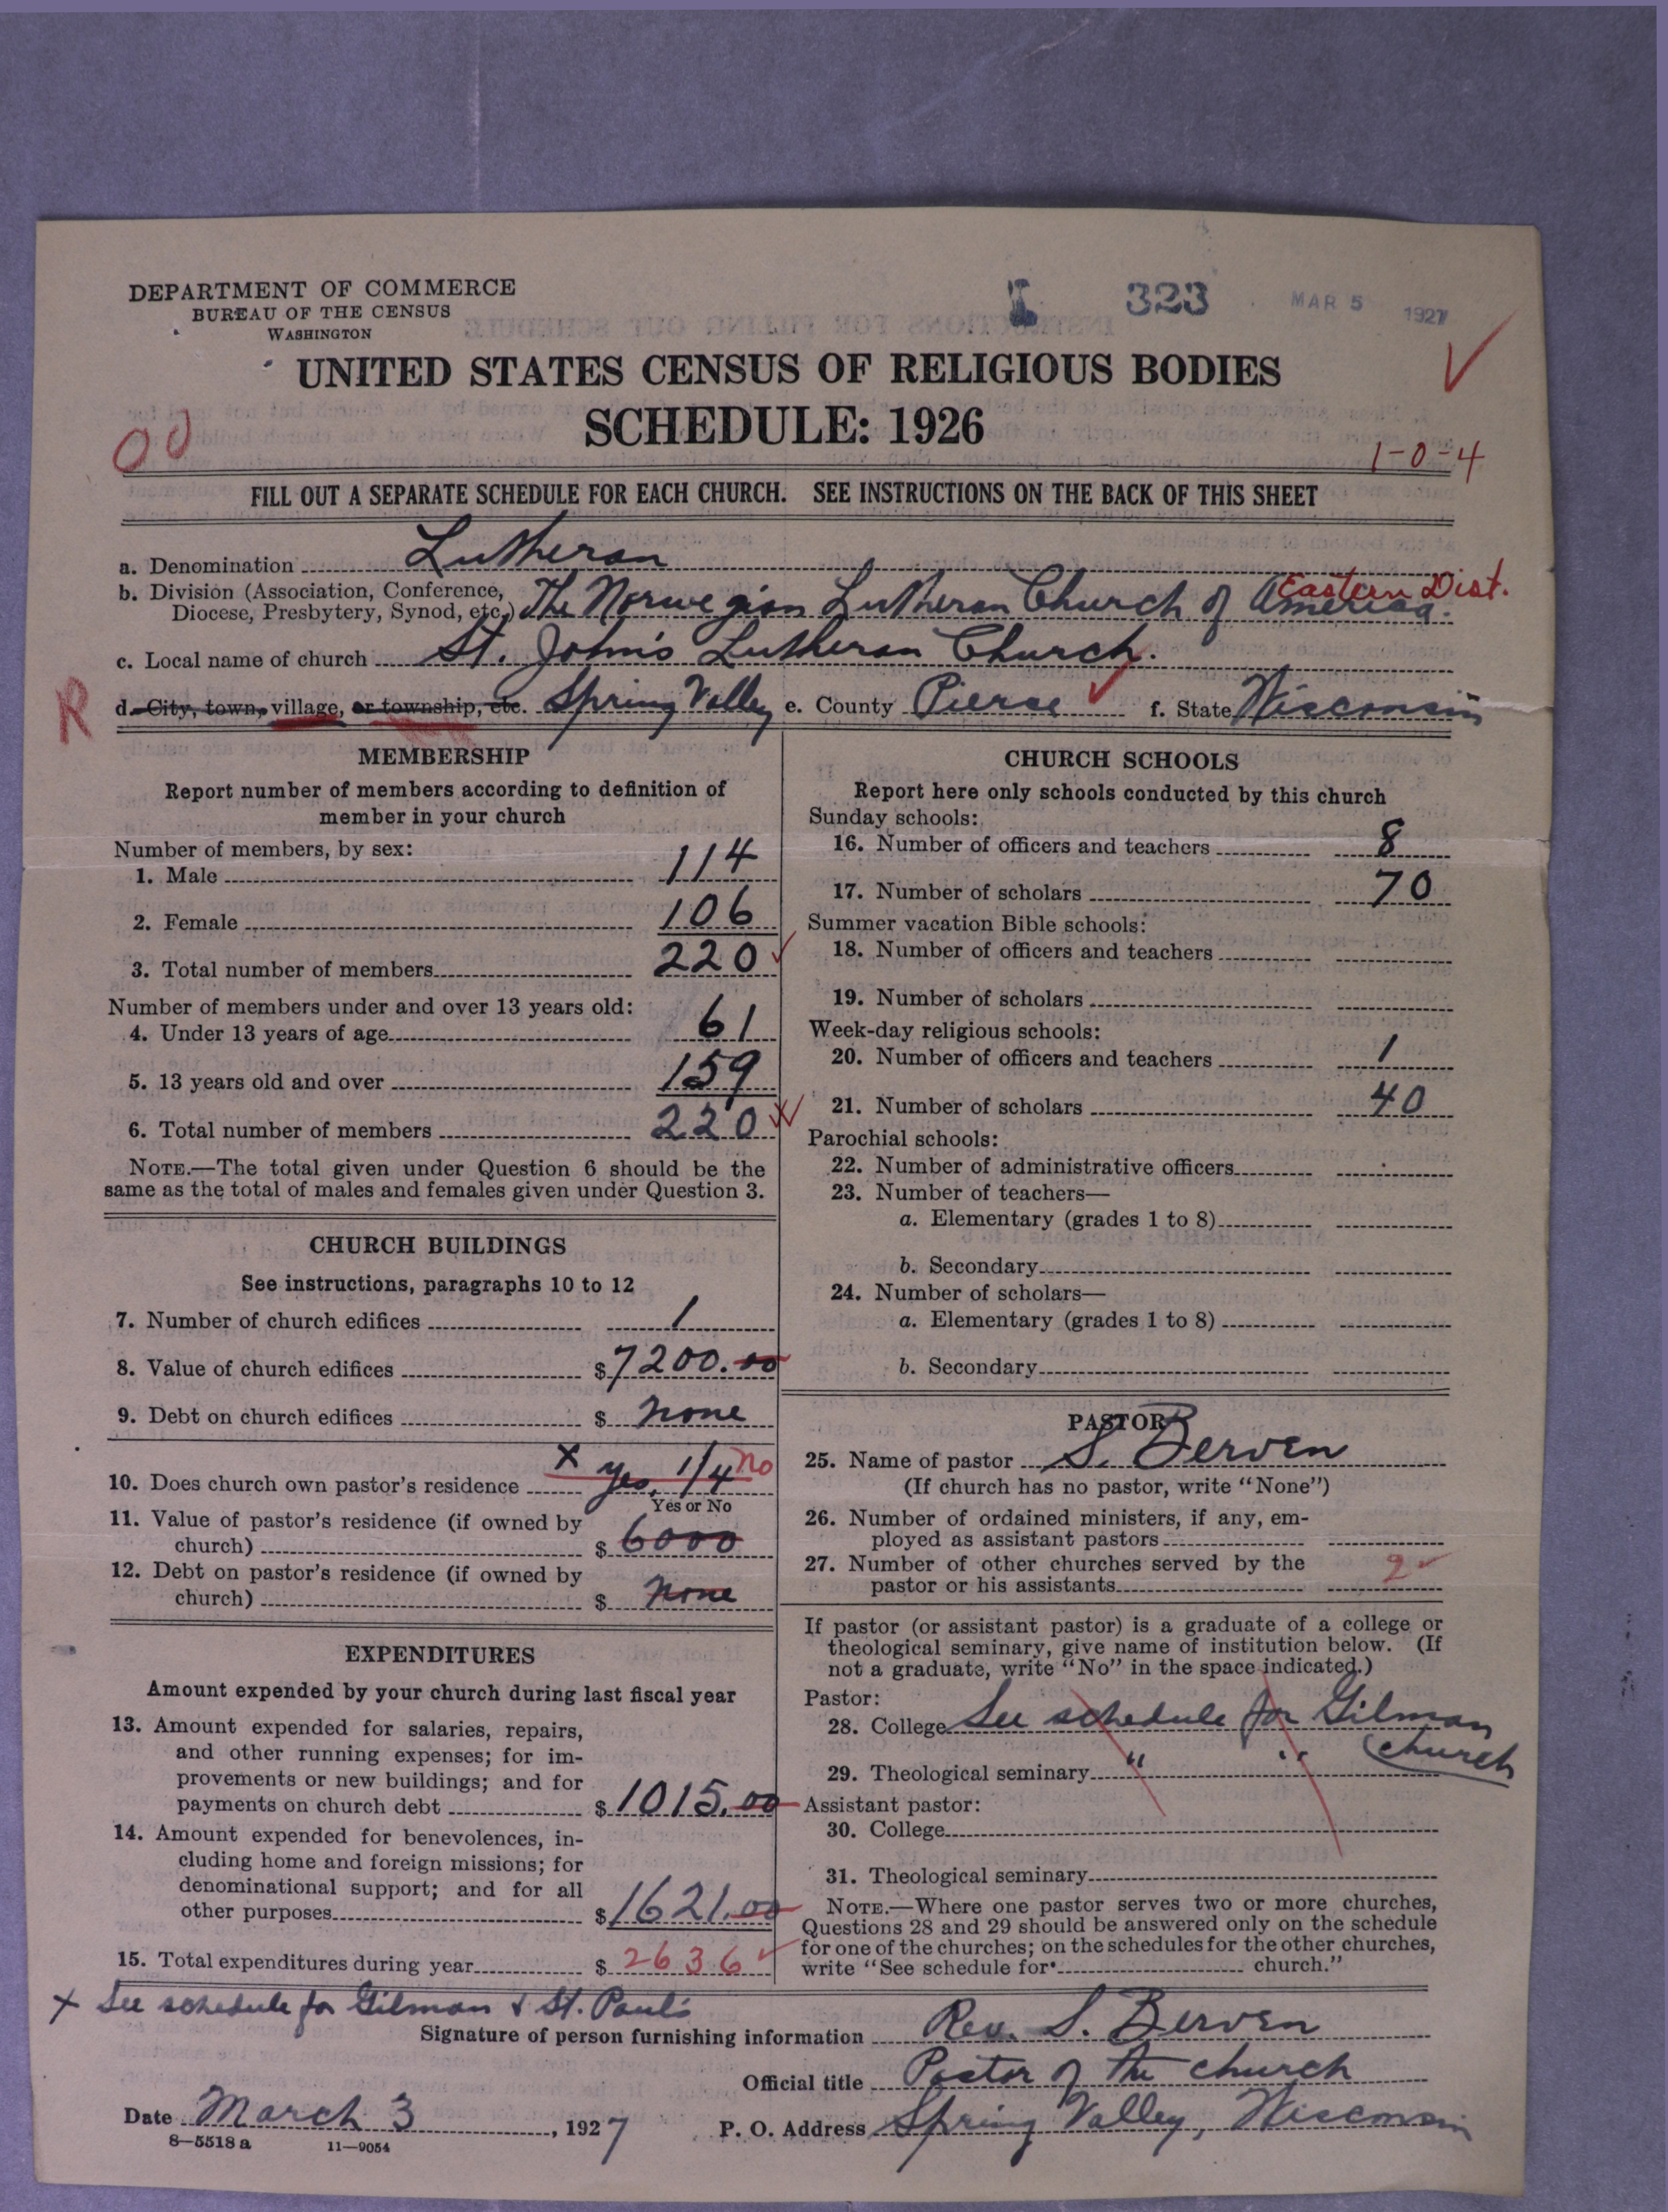 DEPARTMENT OF COMMERCE
BUREAU OF THE CENSUS
WASHINGTON
I 323 MAR 5 1927
UNITED STATES CENSUS OF RELIGIOUS BODIES
SCHEDULE: 1926
00
1-0-4
FILL OUT A SEPARATE SCHEDULE FOR EACH CHURCH. SEE INSTRUCTIONS ON THE BACK OF THIS SHEET
a. Denomination Lutheran
b. Division (Association, Conference,
Diocese, Presbytery, Synod, etc.) The Norwegian Lutheran Church of America. Eastern Dist.
c. Local name of church St. John's Lutheran Church.
R d. City, town, village, or township, etc. Spring Valley e. County Pierce f. State Wisconsin
MEMBERSHIP
Report number of members according to definition of
member in your church
Number of members, by sex:
1. Male 114
2. Female 106
3. Total number of members 220
Number of members under and over 13 years old:
4. Under 13 years of age 61
5. 13 years old and over 159
6. Total number of members 220
NOTE.—The total given under Question 6 should be the
same as the total of males and females given under Question 3.
CHURCH BUILDINGS
See instructions, paragraphs 10 to 12
7. Number of church edifices 1
8. Value of church edifices $7200.00
9. Debt on church edifices $ None
10. Does church own pastor's residence x yes, 1/4 no
Yes or No
11. Value of pastor's residence (if owned by
church) $ 6000
12. Debt on pastor's residence (if owned by
church) $ None
EXPENDITURES
Amount expended by your church during last fiscal year
13. Amount expended for salaries, repairs,
and other running expenses; for im-
provements or new buildings; and for
payments on church debt $1015.00
14. Amount expended for benevolences, in-
cluding home and foreign missions; for
denominational support; and for all
other purposes $1621.00
15. Total expenditures during year $ 2636
CHURCH SCHOOLS
Report here only schools conducted by this church
Sunday schools:
16. Number of officers and teachers 8
17. Number of scholars 70
Summer vacation Bible schools:
18. Number of officers and teachers
19. Number of scholars
Week-day religious schools:
20. Number of officers and teachers 1
21. Number of scholars 40
Parochial schools:
22. Number of administrative officers
23. Number of teachers—
a. Elementary (grades 1 to 8)
b. Secondary
24. Number of scholars—
a. Elementary (grades 1 to 8)
b. Secondary
PASTOR
25. Name of pastor S. Berven
(If church has no pastor, write "None")
26. Number of ordained ministers, if any, em-
ployed as assistant pastors
27. Number of other churches served by the
pastor or his assistants 2
If pastor (or assistant pastor) is a graduate of a college or
theological seminary, give name of institution below. (If
not a graduate, write "No" in the space indicated.)
Pastor:
28. College See schedule for Gilman
church
29. Theological seminary " "
Assistant pastor:
30. College
31. Theological seminary
NOTE.—Where one pastor serves two or more churches,
Questions 28 and 29 should be answered only on the schedule
for one of the churches; on the schedules for the other churches,
write "See schedule for church."
x See schedule for Gilman & St. Paul's
Signature of person furnishing information Rev. S. Berven
Official title Pastor of the church
Date March 3, 1927 P. O. Address Spring Valley, Wisconsin
8—5518 a 11—9054